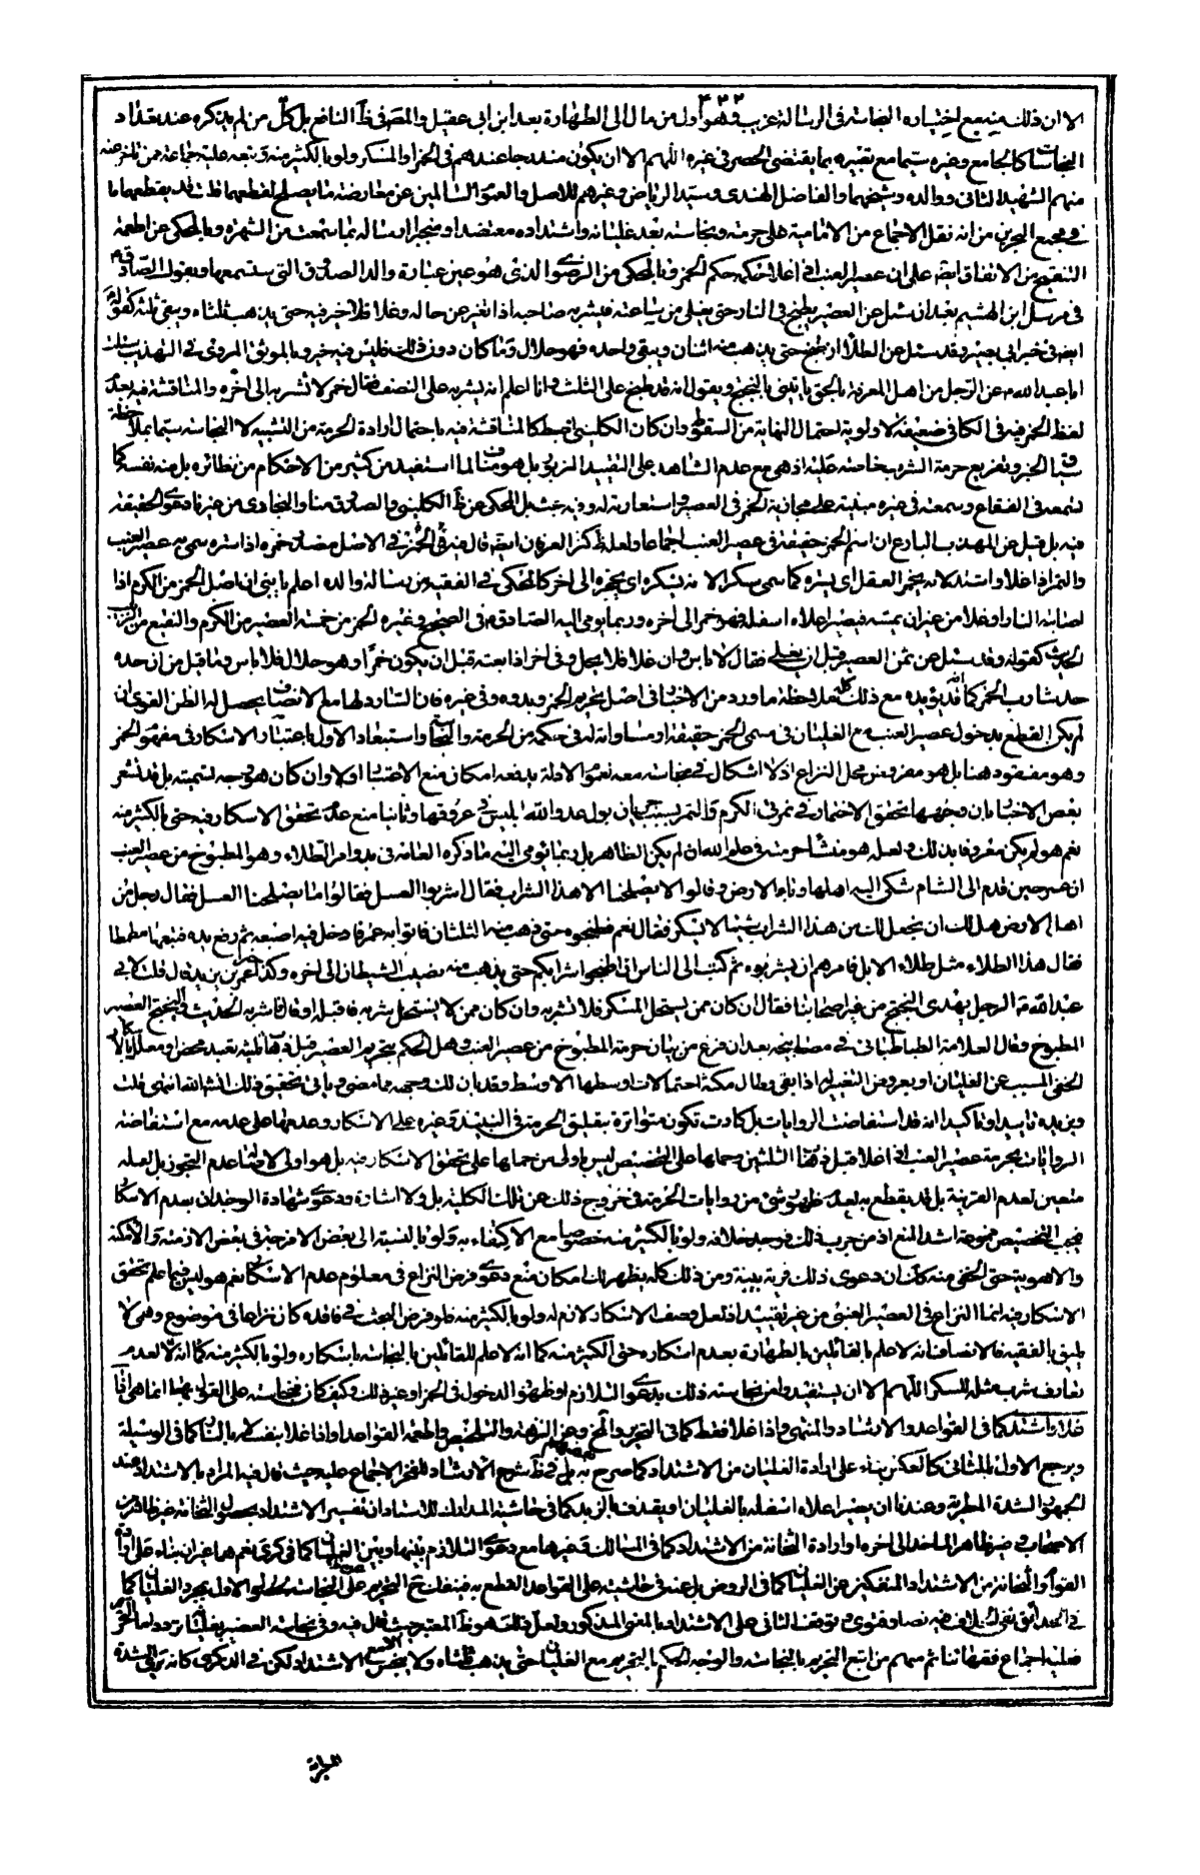 ۴۲۲
الا ان ذلك منه مع اختياره النجاسة في الرسالة غريب وهو اول من مال الى الطهارة بعد ابن ابي عقيل والمص في ظ النافع بل كل من لم يذكره عند تعداد
النجاسات كالجامع وغيره سيما مع تعبيره بما يقتضي الحصر في غيره اللهم الا ان يكون مندرجا عندهم في الخمر او المسكر ولو بالكثير منه وتبعه عليه جماعة ممن تاخر عنه
منهم الشهيد الثاني وولده وشيخهما والفاضل الهندي وسيد الرياض وغيرهم للاصل والعموم السالمين عن معارضة ما يصلح لقطعهما قلت قد يقطعهما ما
في مجمع البحرين من انه نقل الاجماع من الامامية على حرمته ونجاسته بعد غليانه واشتداده معتضدا ومنجبرا رساله بما سمعت من الشهرة وبالمحكي عن اطعمة
التنقيح من الاتفاق ايضا على ان عصير العنب اذا غلا حكمه حكم الخمر وبالمحكي من الرضوي الذي هو عين عبارة والد الصدوق التي ستسمعها وبقول الصادق
في مرسل ابن الهيثم بعد ان سئل عن العصير يطبخ في النار حتى يغلي من ساعته فيشربه صاحبه اذا تغير عن حاله وغلا فلا خير فيه حتى يذهب ثلثاه ويبقى ثلثه كقوله
ايضا في خبر ابي بصير وقد سئل عن الطلا ان طبخ حتى يذهب منه اثنان ويبقى واحد فهو حلال وما كان دون ذلك فليس فيه خير وبالموثق المروي في التهذيب سئلت
ابا عبد الله ع عن الرجل من اهل المعرفة بالحق ياتيني بالبختج ويقول انه قد طبخ على الثلث وانا اعلم انه يشربه على النصف فقال خمر لا تشربه الى اخره والمناقشة فيه بعدم
لفظ الخمر فيه في الكافي ضعيفة لاولوية احتمال النهاية من السقط وان كان الكليني اضبط كالمناقشة فيه باحتمال ارادة الحرمة من التشبيه لا النجاسة سيما بملاحظة
سياق الخبر وتفريع حرمة الشرب خاصة عليه اذ هي مع عدم الشاهد على التقييد المزبور بل هو مناف لما استفيد من كثير من الاحكام من نظائره بل منه نفسه كما
تسمعه في الفقاع وسمعته في غيره مبنية على مجازية الخمر في العصير واستعارته له وفيه بحث بل المحكي عن ظ الكليني والصدوق منا والبخاري من غيرنا دعوى الحقيقة
فيه بل قيل عن المهذب البارع ان اسم الخمر حقيقة في عصير العنب اجماعا ولعله في كنز العرفان ايضا قال فيه الخمر في الاصل مصدر خمره اذا ستره سمي به عصير العنب
والتمر اذا غلا واشتد لانه يخمر العقل اي يستره كما سمي سكرا لانه يسكره اي يحجزه الى اخره كالمحكي في الفقيه من رسالة والده اعلم يا بني ان اصل الخمر من الكرم اذا
اصابته النار او غلا من غير ان تمسه فيصير اعلاه اسفله فهو خمر الى اخره وربما يومي اليه الصادق ع في الصحيح وغيره الخمر من خمسة العصير من الكرم والنقيع من الزبيب
الحديث كقوله وقد سئل عن ثمن العصير قبل ان يغلي فقال لا باس وان غلا فلا يحل وفي اخر اذا بعته قبل ان يكون خمرا وهو حلال فلا باس وما قيل من ان حده
حد شارب الخمر كما انه قد يؤيده مع ذلك كله ملاحظة ما ورد من الاخبار في اصل تحريم الخمر وبدوه وفي غيره فان الناظر لها مع الانصاف يحصل له الظن القوي ان
لم يكن القطع بدخول عصير العنب مع الغليان في مسمى الخمر حقيقة او مساواته له في حكمه من الحرمة والنجاسة واستبعاد الاول باعتبار الاسكار في مفهوم الخمر
وهو مفقود هنا بل هو مفروض محل النزاع اذ لا اشكال في نجاسته معه لعموم الادلة يدفعه امكان منع الاعتبار اولا وان كان هو وجه لتسميته بل قد تشعر
بعض الاخبار بان وجهها تحقق الاختمار في ثمرتي الكرم والتمر بسبب جريان بول عدو الله ابليس في عروقها وثانيا منع عدم تحقق الاسكار فيه حتى بالكثير منه
نعم هو لم يكن معروفا بذلك ولعله هو منشأ حرمته في علم الله ان لم يكن الظاهر بل ربما يومي اليه ما ذكره العامة في بدو امر الطلاء وهو المطبوخ من عصير العنب
ان عمر حين قدم الى الشام شكى اليه اهلها وباء الارض وقالوا لا يصلحنا الا هذا الشراب فقال اشربوا العسل فقالوا ما يصلحنا العسل فقال رجل من
اهل الارض هل لك ان نجعل لك من هذا الشراب شيئا لا يسكر فقال نعم فطبخوه حتى ذهب منه الثلثان فاتوا به عمر فادخل فيه اصبعه ثم رفع يده فتبعها متمططا
فقال هذا الطلاء مثل طلاء الابل فامرهم ان يشربوه ثم كتب الى الناس ان اطبخوا شرابكم حتى يذهب منه نصيب الشيطان الى اخره وكذا خبر عمر بن يزيد قال قلت لابي
عبد الله ع الرجل يهدي البختج من غير اصحابنا فقال ان كان ممن يستحل المسكر فلا تشربه وان كان ممن لا يستحل شربه فاقبله او قال فاشربه الحديث اذ البختج العصير
المطبوخ وقال العلامة الطباطبائي في مصابيحه بعد ان فرغ من بيان حرمة المطبوخ من عصير العنب وهل الحكم بتحريم العصير قبل ذهاب ثلثيه تعبد محض او معلل بالاسكار
الخفي المسبب عن الغليان او بعروض التغير له اذا بقي وطال مكثه احتمالات اوسطها الاوسط وقد بان لك وجهه مما مضى وياتي تحقيق ذلك انشاء الله انتهى قلت
ويزيده تاييدا وتاكيدا انه قد استفاضت الروايات بل كادت تكون متواترة بتعليق الحرمة في النبيذ وغيره على الاسكار وعدمها على عدمه مع استفاضة
الروايات بحرمة عصير العنب اذا غلا قبل ذهاب الثلثين وحملها على التخصيص ليس باولى من حملها على تحقق الاسكار فيه بل هو اولى لاصالة عدم التجوز بل لعله
متعين لعدم القرينة بل قد يقطع به لعدم ظهور شئ من روايات الحرمة في خروج ذلك عن تلك الكلية بل ولا اشارة ودعوى شهادة الوجدان بعدم الاسكار
فيجب التخصيص ممنوعة اشد المنع اذ من جرب ذلك فوجد خلافه ولو بالكثير منه خصوصا مع الاكتفاء به ولو بالنسبة الى بعض الامزجة في بعض الازمنة والامكنة
والاهوية حتى الخفي منه كان ان دعوى ذلك فرية بينة ومن ذلك كله يظهر لك امكان منع دعوى فرض النزاع في معلوم عدم الاسكار نعم هو ليس فيما علم تحقق
الاسكار فيه انما النزاع في العصير العنبي من غير تقييد اذ لعل وصف الاسكار لازم له ولو بالكثير منه فلو فرض البحث في فاقده كان نزاعا في موضوع وهمي لا
يليق بالفقيه فالانصاف انه لا علم للقائلين بالطهارة بعدم اسكاره حتى الكثير منه كما انه لا علم للقائلين بالنجاسة باسكاره ولو بالكثير منه كما انه لا لعدم
تعارف شرب مثله للسكر اللهم الا ان يستفيدوا من نجاسته ذلك بدعوى التلازم او ظهور الدخول في الخمر او غير ذلك وكيف كان فنجاسته على القول بها انما هي اذا
غلا واشتد كما في القواعد والارشاد والمنتهى واذا غلا فقط كما في التحرير وعن النزهة والتلخيص واطعمة القواعد او اذا غلا بنفسه لا بالنار كما في الوسيلة
ويرجع الاول للثاني كالعكس بناء على ارادة الغليان من الاشتداد كما صرح به بل في ظ شرح الارشاد للفخر الاجماع عليه حيث قال فيه المراد بالاشتداد عند
الجمهور الشدة المطربة وعندنا ان يصير اعلاه اسفله بالغليان او يقذف بالزبد كما في حاشية المدارك للاستاد ان تفسير الاشتداد بحصول الثخانة غير ظاهر من
الاصحاب وغير ظاهر الماخذ الى اخره او ارادة الثخانة من الاشتداد كما في المسالك وغيرها مع دعوى التلازم بينها وبين الغليان كما في كرى نعم هما غيران بناء على ارادة
القوام والثخانة من الاشتداد المنفكين عن الغليان كما في الروض بل عنه في حاشيته على القواعد القطع به فينفك ح التحريم على النجاسة لحصول الاول بمجرد الغليان كما
في الحدائق نفي الخلاف فيه نصا وفتوى وتوقف الثاني على الاشتداد بالمعنى المذكور ولعل ذلك هو ظ المعتبر حيث قال فيه وفي نجاسة العصير بغليانه تردد اما التحريم
فعليه اجماع فقهائنا ثم منهم من اتبع التحريم بالنجاسة والوجه الحكم بالتحريم مع الغليان حتى يذهب ثلثاه ولا ينجس الا مع الاشتداد لكن في الذكرى كانه يرى الشدة
المطربة